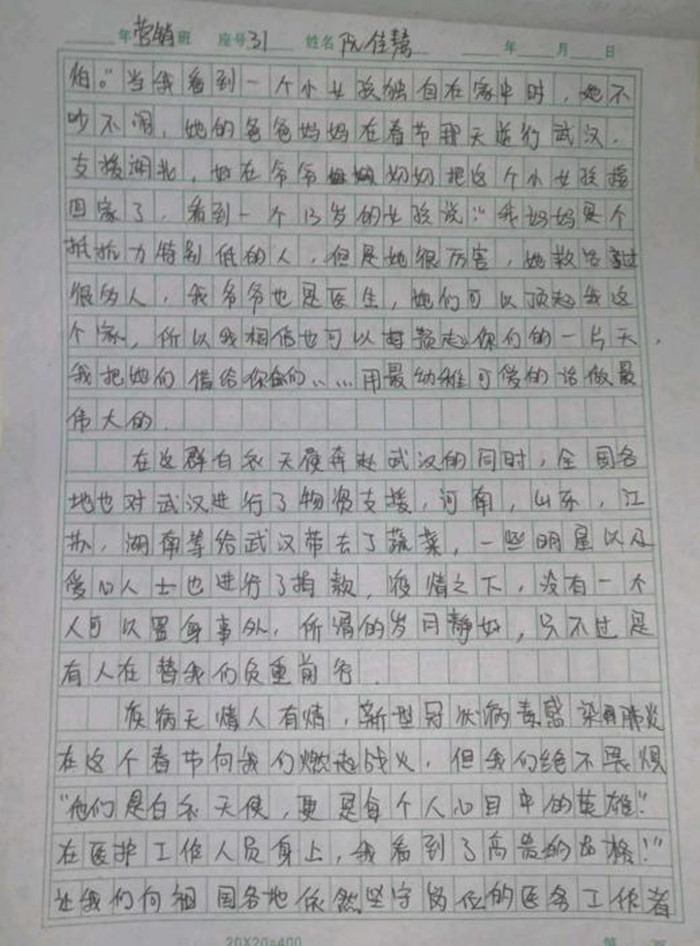 年 营销 班 座号 31 姓名 阮佳慧 年 月 日
怕。"当我看到一个小女孩独自在家中时，她不
吵不闹，她的爸爸妈妈在春节那天逆行武汉，
支援湖北，好在爷爷奶奶把这个小女孩接
回家了，看到一个13岁的女孩说："我妈妈是个
抵抗力特别低的人，但是她很厉害，她救治过
很多人，我爷爷也是医生，她们可以顶起我这
个家，所以我相信也可以撑起你们的一片天，
我把她们借给你们……用最幼稚可爱的话做最
伟大的.
在这群白衣天使奔赴武汉的同时，全国各
地也对武汉进行了物资支援，河南，山东，江
苏，湖南等给武汉带去了蔬菜，一些明星以及
爱心人士也进行了捐款，疫情之下，没有一个
人可以置身事外，所谓的岁月静好，只不过是
有人在替我们负重前行.
疾病无情人有情，新型冠状病毒感染肺炎
在这个春节向我们燃起战火，但我们绝不畏惧
"他们是白衣天使，更是每个人心目中的英雄."
在医护工作人员身上，我看到了高贵的品格！"
让我们向祖国各地依然坚守岗位的医务工作者
20X20=400 第 页